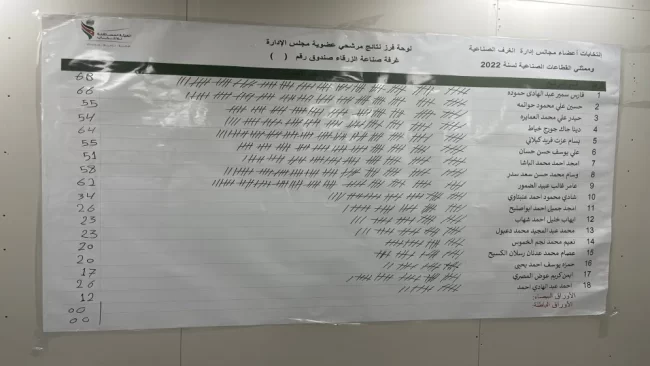 الهيئة المستقلة للانتخاب
انتخابات أعضاء مجالس إدارة الغرف الصناعية
وممثلي القطاعات الصناعية لسنة 2022
لوحة فرز نتائج مرشحي عضوية مجلس الإدارة
غرفة صناعة الزرقاء صندوق رقم ( )
1 فارس سمير عبد الهادي حموده 68
2 حسين علي محمود حوالمه 66
3 حيدر علي محمد العمايره 55
4 دينا جاك جورج خياط 54
5 بسام عزت فريد كيلاني 64
6 علي يوسف حسن حسان 55
7 امجد احمد محمد الباشا 51
8 وسام محمد حسن سعد سدر 58
9 عامر قالب عبيد الضمور 62
10 شادي محمود احمد عنبتاوي 34
11 امجد جميل احمد ابواصليح 26
12 ايهاب خليل احمد شهاب 23
13 محمد عبد المجيد محمد دعبول 23
14 نعيم محمد نجم الخموس 20
15 عصام محمد عدنان رسلان الكسيح 20
16 حمزه يوسف احمد يحيى 17
17 ايمن كريم عوض المصري 26
18 احمد عبد الهادي احمد 12
الأوراق البيضاء: 00
الأوراق الباطلة 00